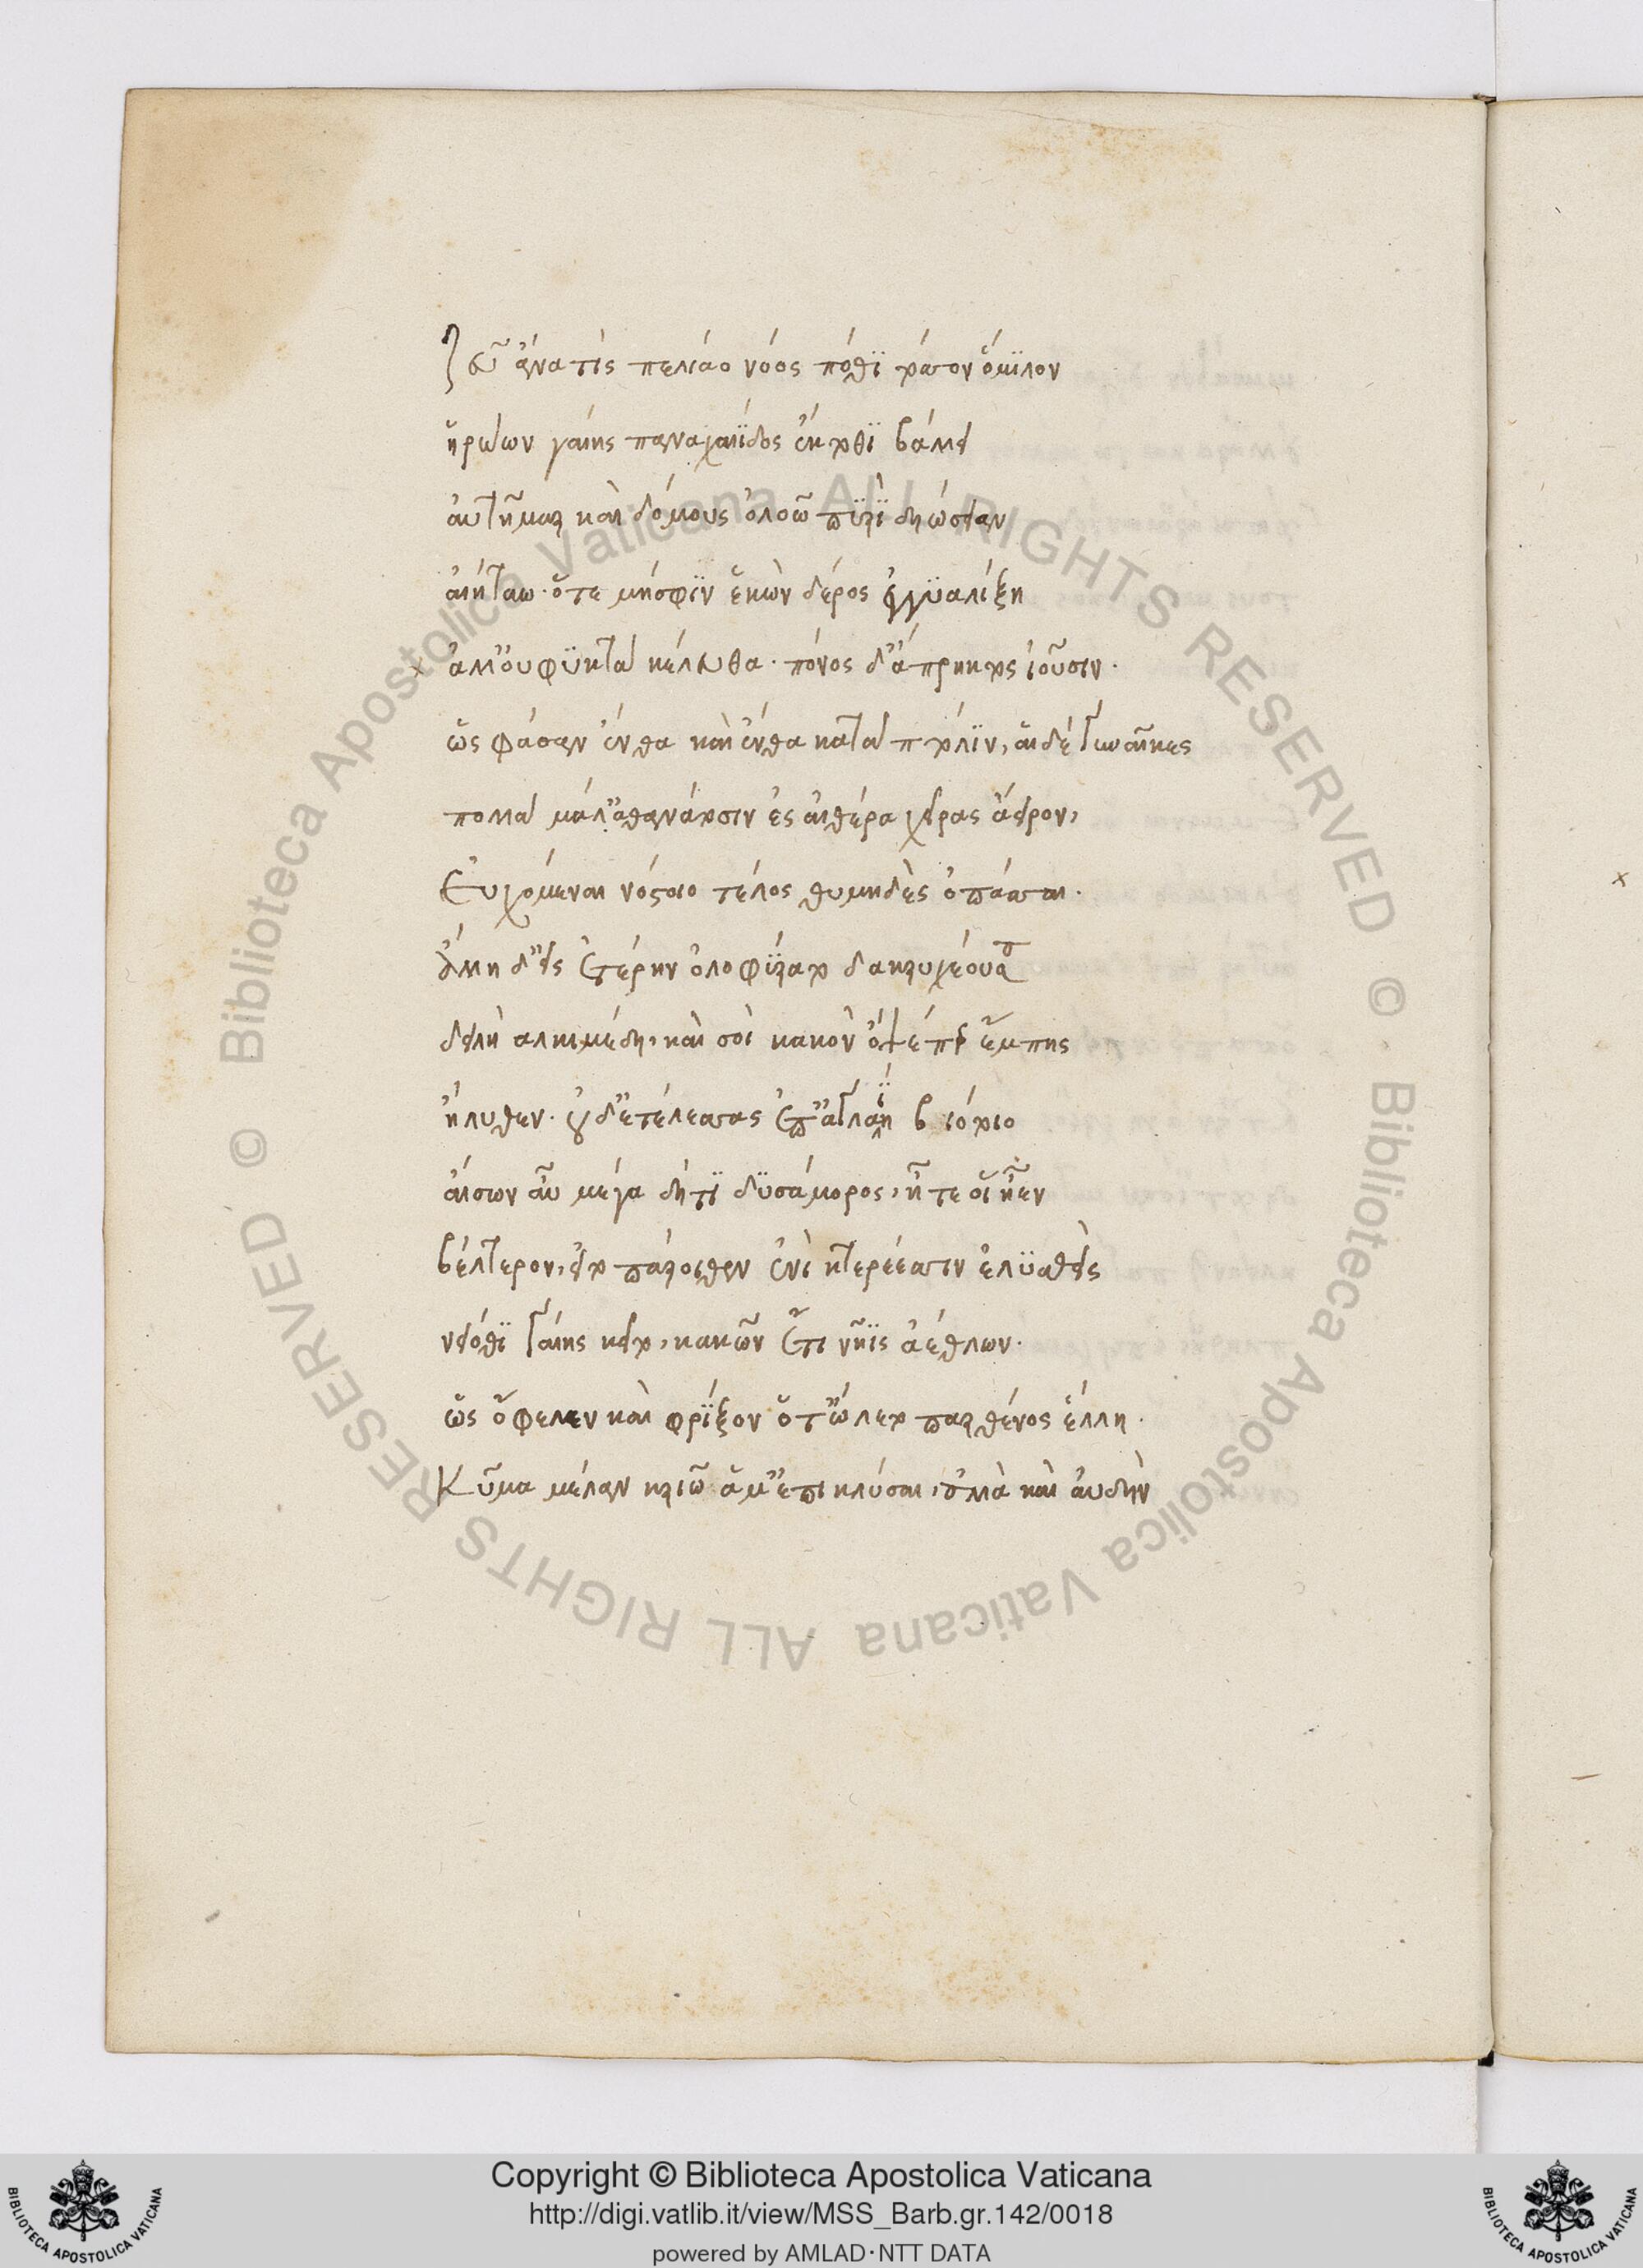 Ζεῦ ἄνα τίς πελίαο νόος πόθϊ τόσσον ὅμϊλον
ἡρώων γαίης παναχαιΐδος ἔκτοθϊ βάλλει
αὐτῆμαρ καὶ δόμους ὀλοῶ πϋρὶ δηώσειαν
αἰήταω· ὅτε μήσφϊν ἑκὼν δέρος ἐγγϋαλίξη
x ἀλλ' οὐ φϋκτὰ κέλευθα· πόνος δ' ἄπρηκτος ἰοῦσιν·
ὣς φάσαν ἔνθα καὶ ἔνθα κατὰ πτόλϊν, αἱ δὲ γυναῖκες
πολλὰ μάλ' ἀθανάτοισιν ἐς αἰθέρα χεῖρας ἄειρον,
Εὐχόμεναι νόστοιο τέλος θυμηδὲς ὀπάσσαι·
ἄλλη δ' εἰς ἑτέρην ὀλοφΰρατο δακρυχέουσα
δειλὴ ἀλκιμέδη, καὶ σοὶ κακὸν ὀψέ περ ἔμπης
ἤλυθεν· οὐδ' ἐτέλεσσας ἐπ' ἀγλαΐη βιότοιο
αἴσων αὖ μέγα δή τϊ δϋσάμορος, ἦ τε οἱ ἦεν
βέλτερον, εἰ τὸ πάροιθεν ἐνὶ κτερέεσσιν ἐλϋσθεὶς
νειόθϊ γαίης κεῖτο, κακῶν ἔτι νῆϊς ἀέθλων·
ὡς ὄφελεν καὶ φρῖξον ὅτ' ὤλετο παρθένος ἕλλη·
Κῦμα μέλαν κριῶ ἅμ' ἐπικλύσαι, ἀλλὰ καὶ αὐδὴν
Copyright © Biblioteca Apostolica Vaticana
http://digi.vatlib.it/view/MSS_Barb.gr.142/0018
powered by AMLAD·NTT DATA